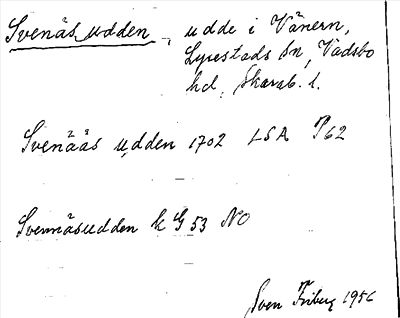 Svenäs udden, udde i Vänern,
Lyrestads sn, Vadsbo
hd, Skarab. l.
Svenääs udden 1702 LSA P62
Svennäsudden k G 53 NO
Sven Friberg 1956